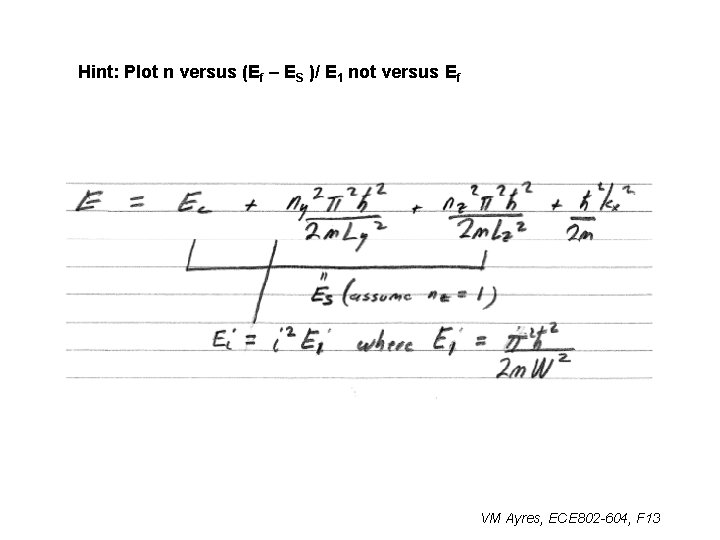 Hint: Plot n versus (Ef – ES )/ E1 not versus Ef
E = Ec + ny²π²ħ²/2mLy² + nz²π²ħ²/2mLz² + ħ²kx²/2m
"
Es (assume nz = 1)
Ei = i²E1 where E1 = π²ħ²/2mW²
VM Ayres, ECE802-604, F13